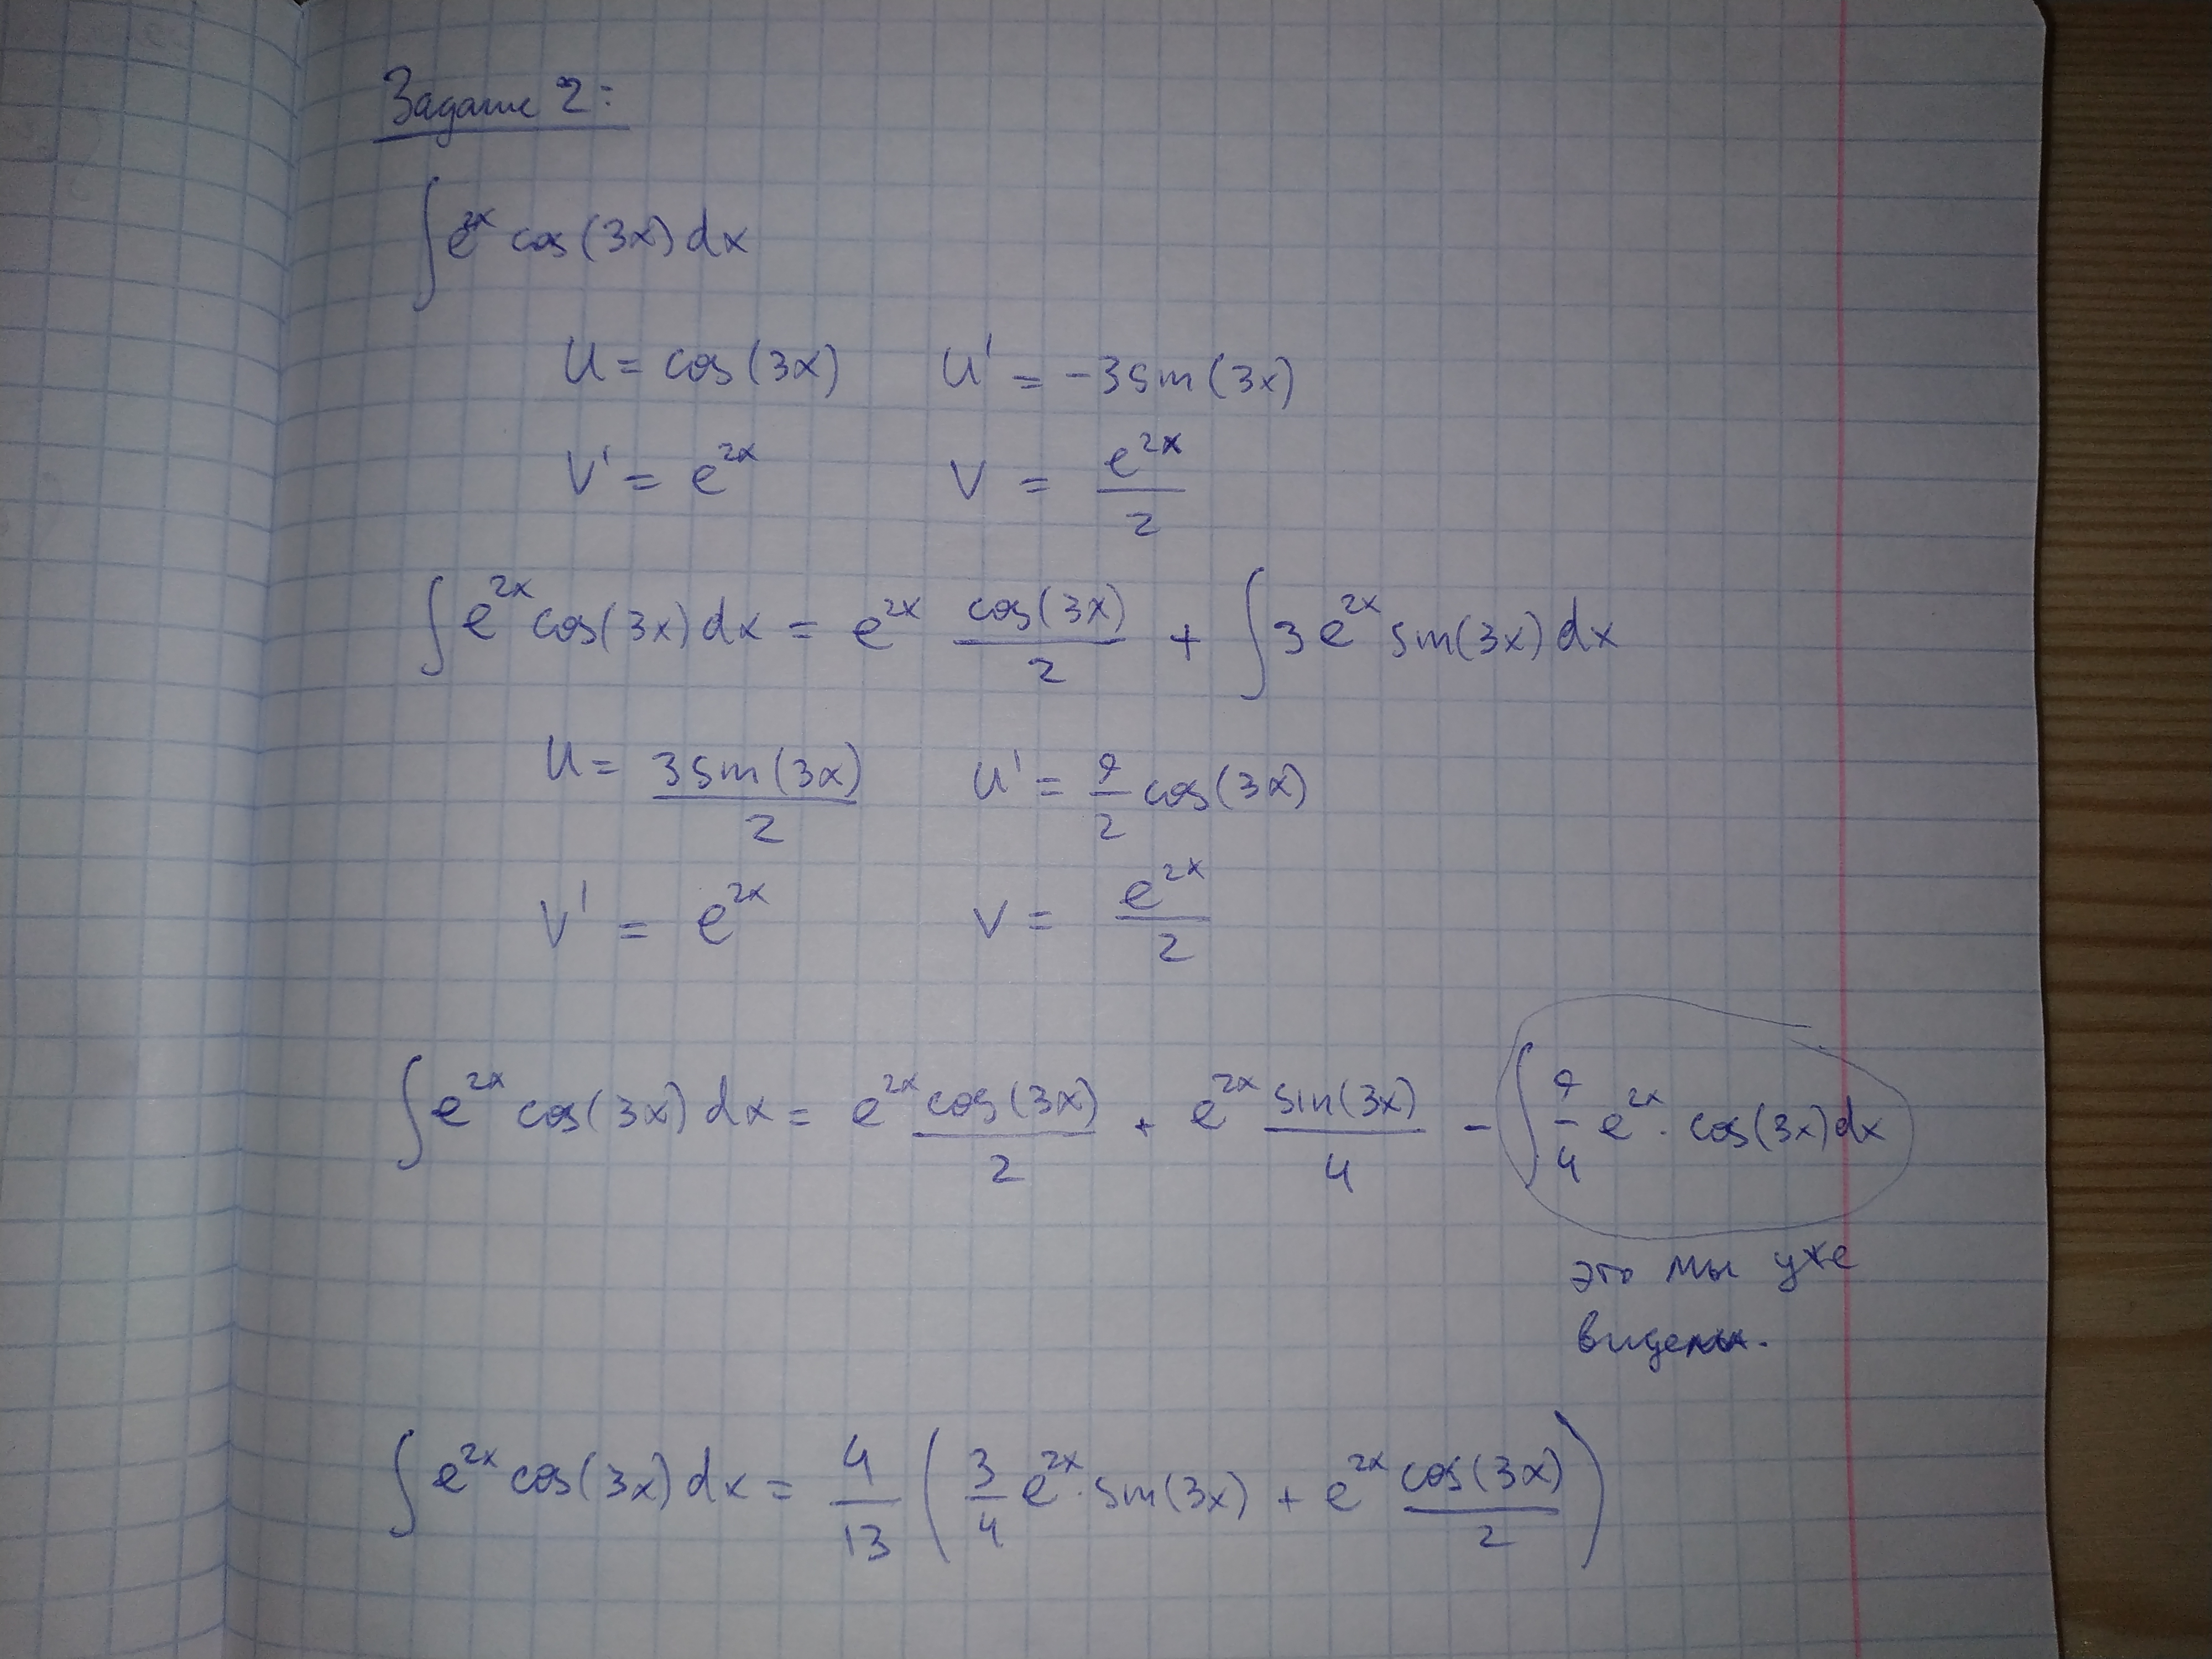 Задание 2:
∫ e^{2x} cos(3x) dx
U = cos(3x) U' = -3 sin(3x)
V' = e^{2x} V = \frac{e^{2x}}{2}
∫ e^{2x} cos(3x) dx = e^{2x} \frac{cos(3x)}{2} + ∫ 3 e^{2x} sin(3x) dx
U = \frac{3 sin(3x)}{2} U' = \frac{9}{2} cos(3x)
V' = e^{2x} V = \frac{e^{2x}}{2}
∫ e^{2x} cos(3x) dx = e^{2x} \frac{cos(3x)}{2} + e^{2x} \frac{sin(3x)}{4} - ∫ \frac{9}{4} e^{2x} · cos(3x) dx
это мы уже
видели.
∫ e^{2x} cos(3x) dx = \frac{4}{13} ( \frac{3}{4} e^{2x} · sin(3x) + e^{2x} \frac{cos(3x)}{2} )